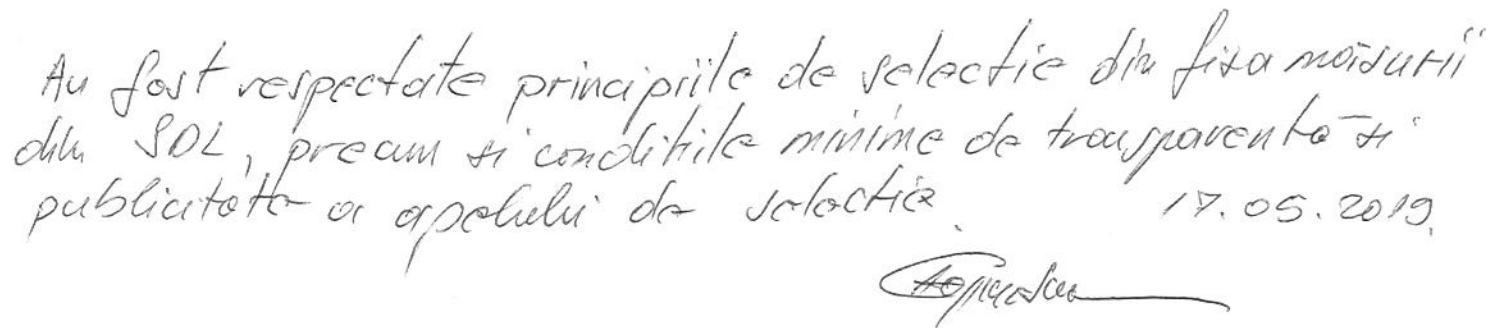 Au fost respectate principiile de selectie din fisa măsurii
din SDL, precum si conditiile minime de trasparentă si
publicitate a apelului de selectie. 17.05.2019.